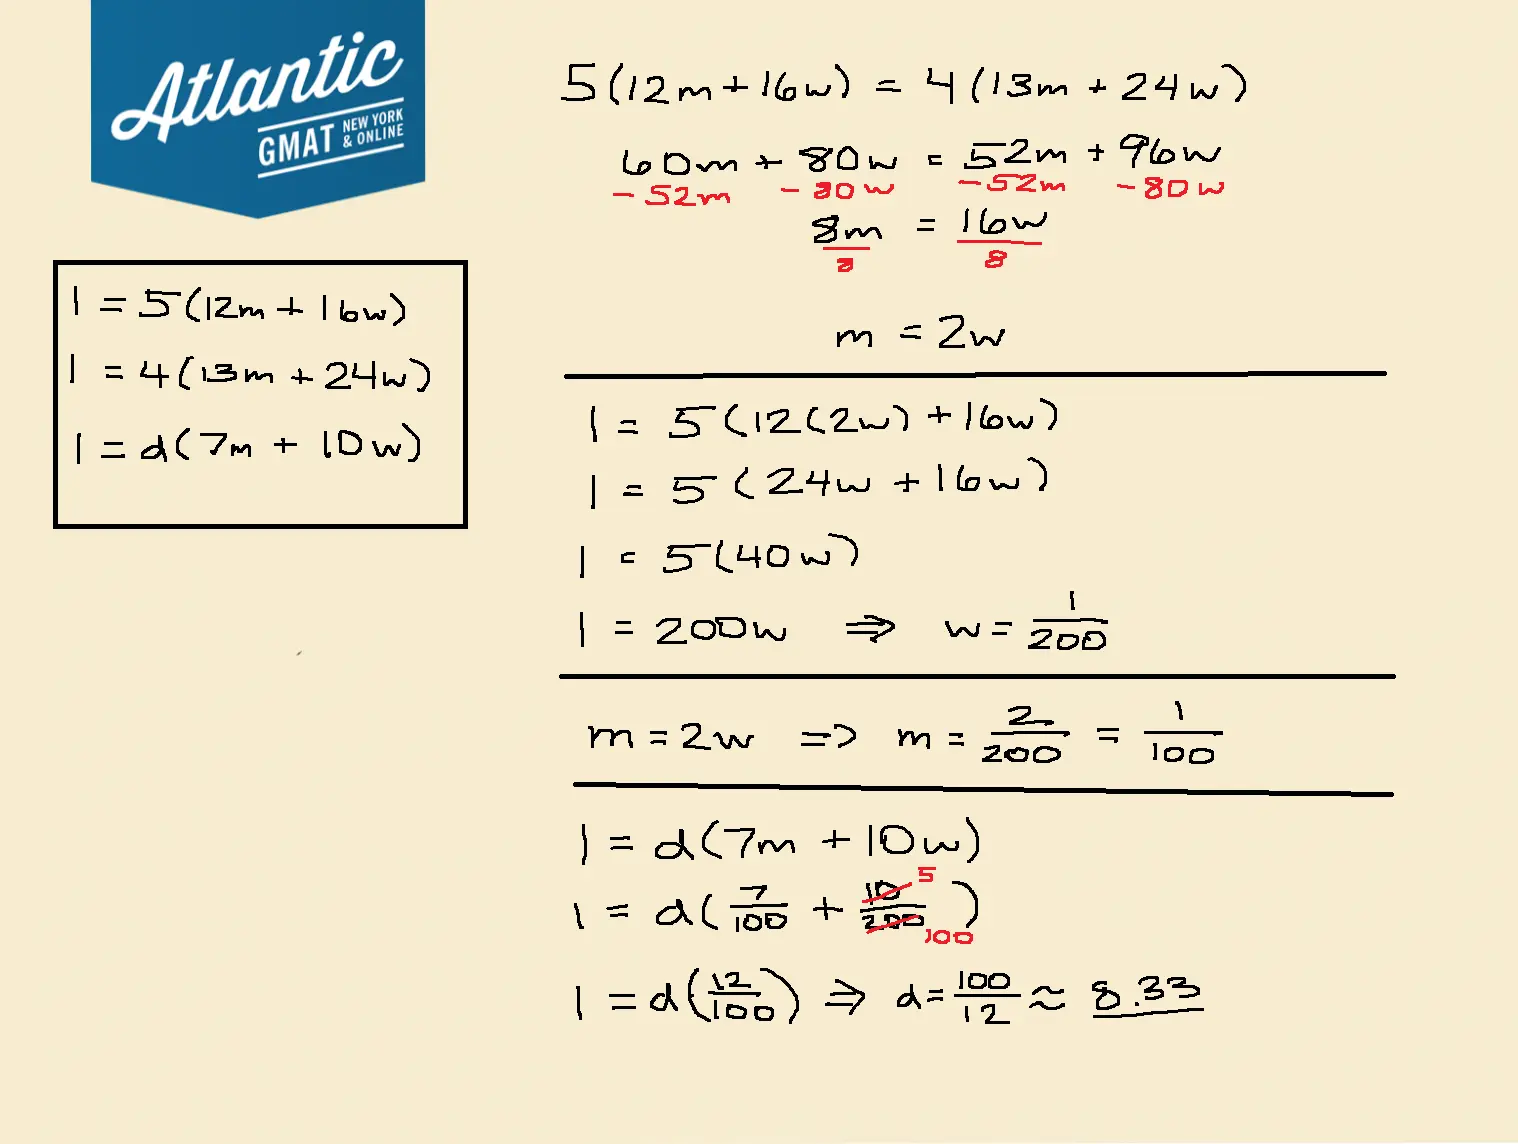 Atlantic
GMAT NEW YORK & ONLINE
1 = 5(12m + 16w)
1 = 4(13m + 24w)
1 = d(7m + 10w)
5(12m + 16w) = 4(13m + 24w)
60m + 80w = 52m + 96w
-52m -80w -52m -80w
8m = 16w
8 8
m = 2w
1 = 5(12(2w) + 16w)
1 = 5(24w + 16w)
1 = 5(40w)
1 = 200w ⇒ w = 1/200
m = 2w => m = 2/200 = 1/100
1 = d(7m + 10w)
1 = d(7/100 + 10/200) 5 100
1 = d(12/100) ⇒ d = 100/12 ≈ 8.33